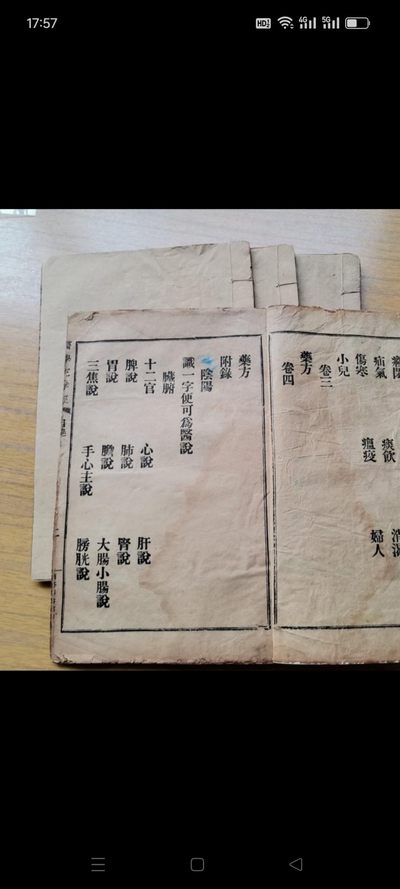 17:57
HD
4G
5G
疝氣 痰飲 婦人
傷寒 瘟疫
小兒
卷三
藥方
卷四
藥方
附錄
陰陽
識一字便可爲醫說
臟腑
十二官 心說 肝說
脾說 肺說 腎說
胃說 膽說 大腸小腸說
三焦說 手心主說 膀胱說